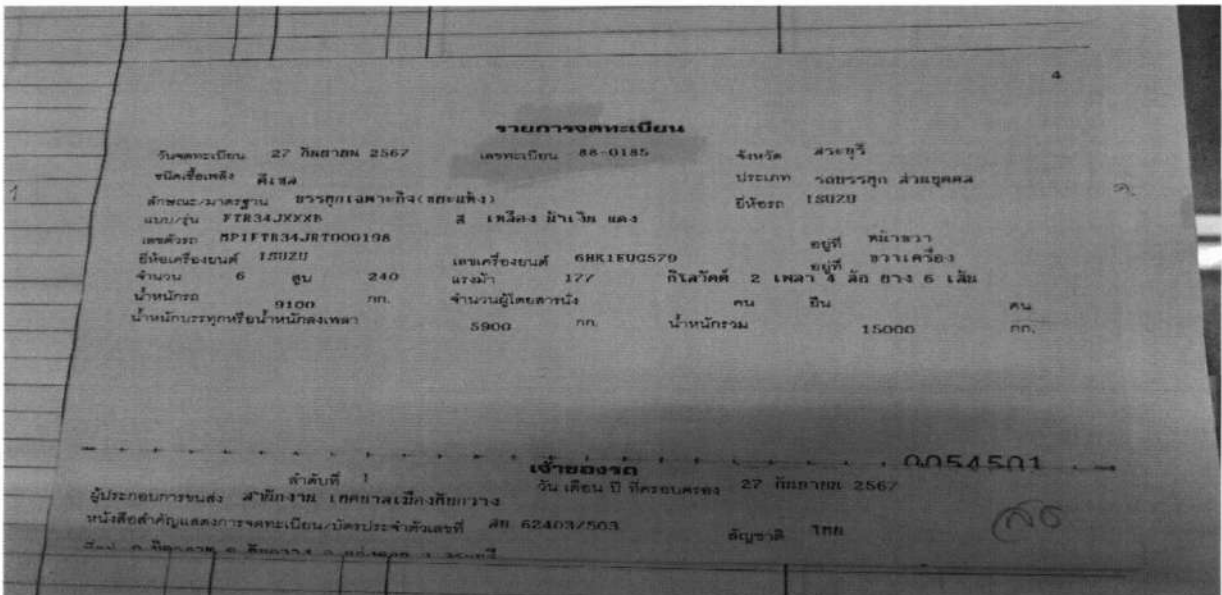 4
รายการจดทะเบียน
วันจดทะเบียน 27 กันยายน 2567 เลขทะเบียน 88-0185 จังหวัด สระบุรี
ชนิดเชื้อเพลิง ดีเซล ประเภท รถบรรทุก ส่วนบุคคล
ลักษณะ/มาตรฐาน บรรทุกเฉพาะกิจ(ขยะแห้ง) ยี่ห้อรถ ISUZU
แบบ/รุ่น FTR34JXXXB สี เหลือง น้ำเงิน แดง
เลขตัวรถ MP1FTR34JRT000198 อยู่ที่ หน้าขวา
ยี่ห้อเครื่องยนต์ ISUZU เลขเครื่องยนต์ 6HK1EUG579 อยู่ที่ ขวาเครื่อง
จำนวน 6 สูบ 240 แรงม้า 177 กิโลวัตต์ 2 เพลา 4 ล้อ ยาง 6 เส้น
น้ำหนักรถ 9100 กก. จำนวนผู้โดยสารนั่ง คน ยืน คน
น้ำหนักบรรทุกหรือน้ำหนักลงเพลา 5900 กก. น้ำหนักรวม 15000 กก.
0054501
เจ้าของรถ
ลำดับที่ 1 วัน เดือน ปี ที่ครอบครอง 27 กันยายน 2567
ผู้ประกอบการขนส่ง สำนักงาน เทศบาลเมืองทับกวาง
หนังสือสำคัญแสดงการจดทะเบียน/บัตรประจำตัวเลขที่ สบ 62403/503 สัญชาติ ไทย